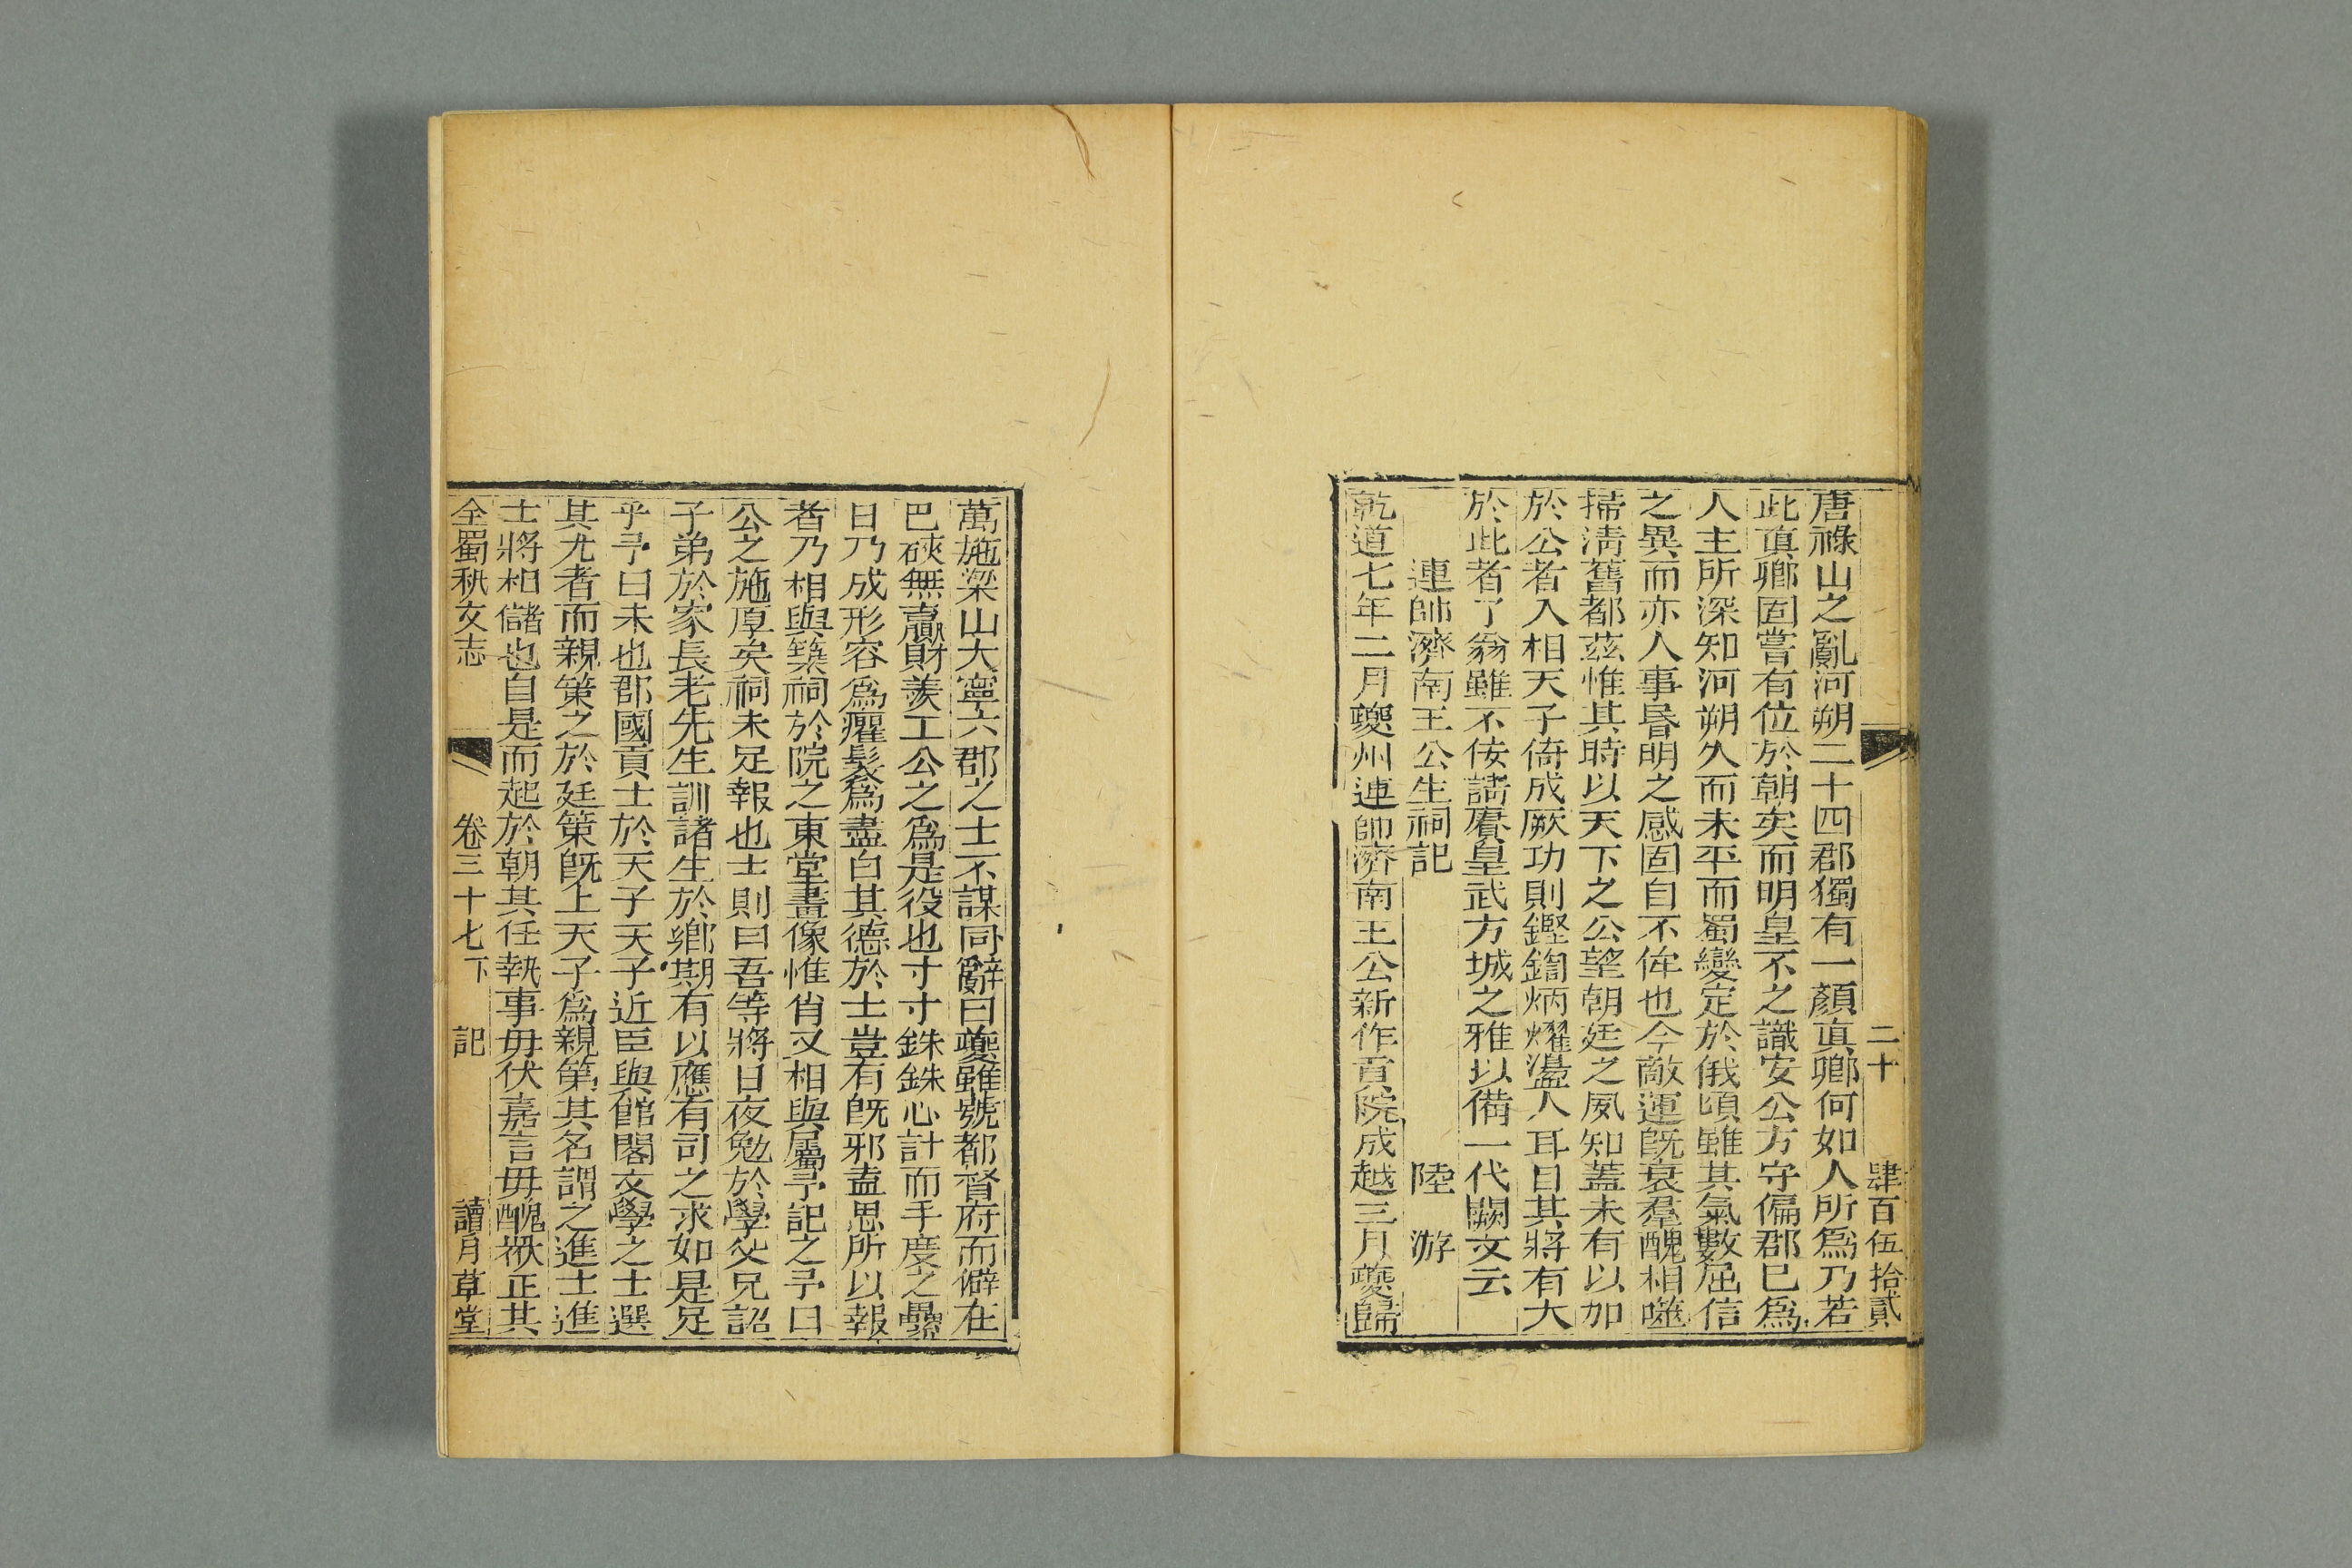 二十 肆百伍拾貳
唐祿山之亂河朔二十四郡獨有一顏真卿何如人所爲乃若
此真卿固嘗有位於朝矣而明皇不之識安公方守偏郡巳爲
人主所深知河朔久而未平而蜀變定於俄頃雖其氣數屈信
之異而亦人事昏明之感固自不侔也今敵運旣衰羣醜相噬
掃清舊都茲惟其時以天下之公望朝廷之夙知蓋未有以加
於公者入相天子倚成厥功則鏗鍧炳燿盪人耳目其將有大
於此者了翁雖不佞請賡皇武方城之雅以備一代闕文云
連帥濟南王公生祠記 陸游
乾道七年二月夔州連帥濟南王公新作貢院成越三月夔歸
萬施梁山大寧六郡之士不謀同辭曰夔雖號都督府而僻在
巴硤無贏財羨工公之爲是役也寸寸銖銖心計而手度之纍
日乃成形容爲癯髮爲盡白其德於士豈有旣邪盍思所以報
者乃相與築祠於院之東堂畫像惟肖又相與屬予記之予曰
公之施厚矣祠未足報也士則曰吾等將日夜勉於學父兄詔
子弟於家長老先生訓諸生於鄉期有以應有司之求如是足
乎予曰未也郡國貢士於天子天子近臣與館閣文學之士選
其尤者而親策之於廷策旣上天子爲親第其名謂之進士進
士將相儲也自是而起於朝其任執事毋伏嘉言毋醜猷正其
全蜀秇文志 卷三十七下 記 讀月草堂